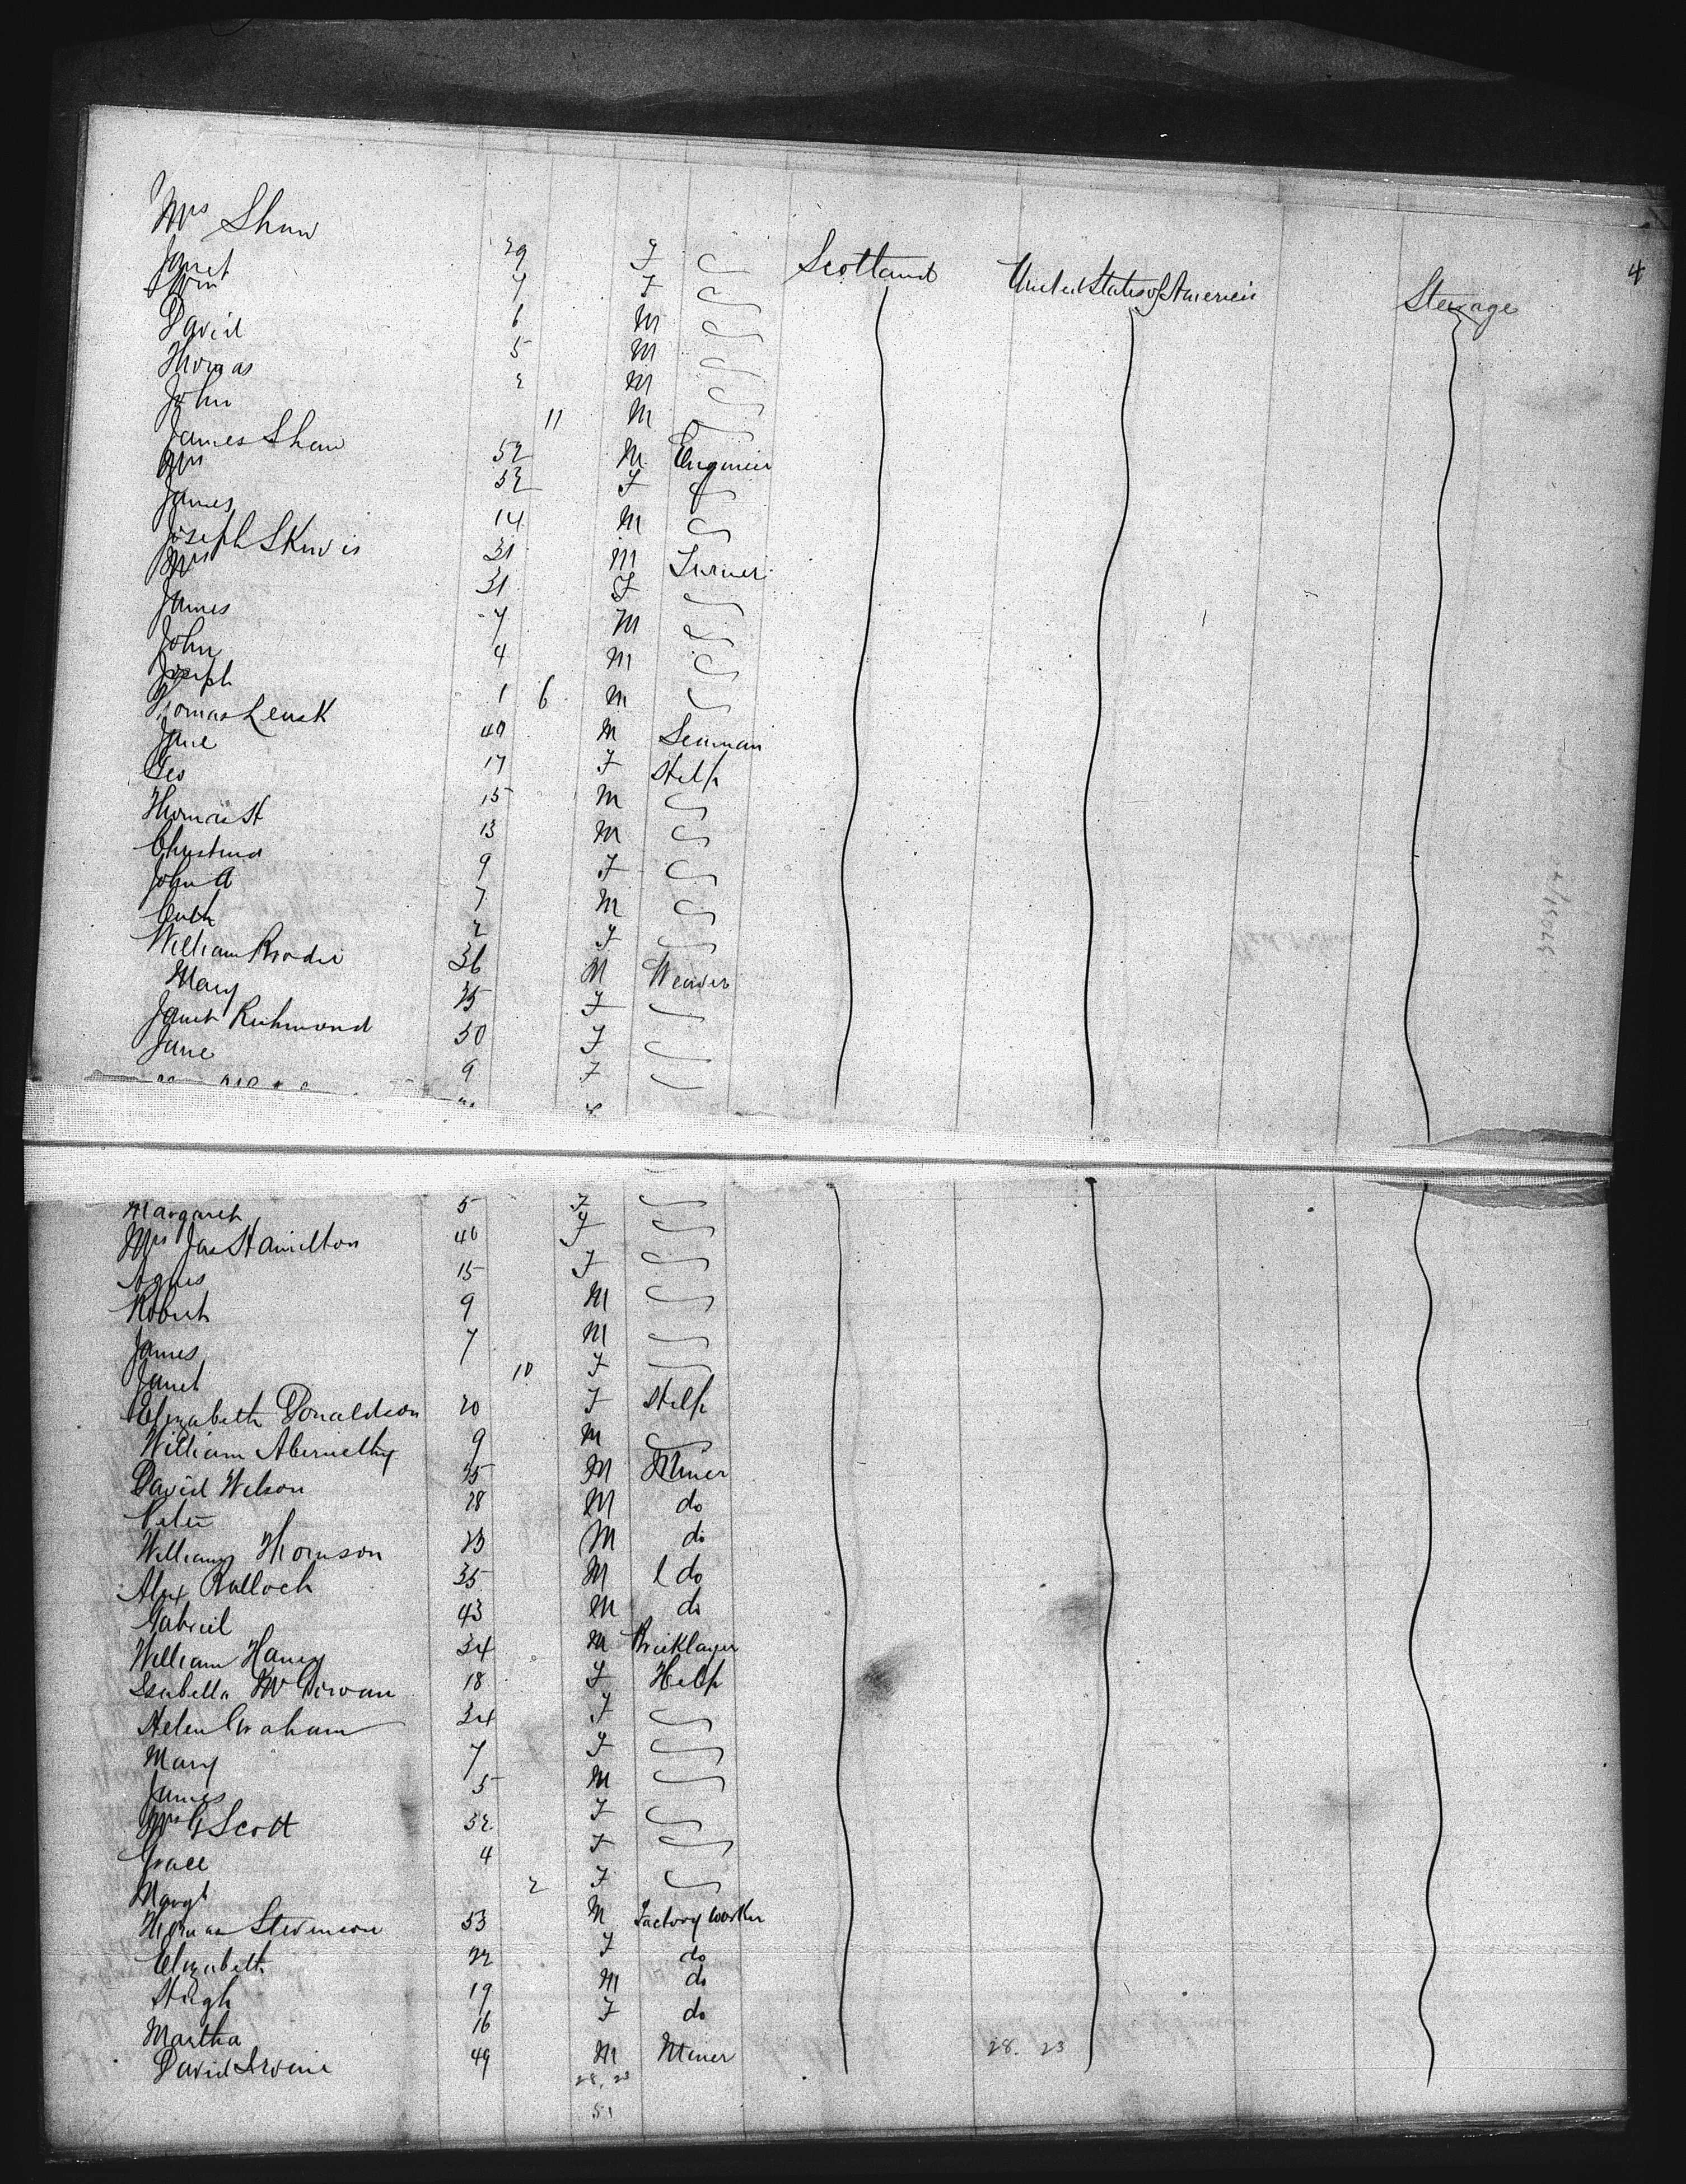 4
Mrs Shaw 29 F Scotland United States of America Steerage
Janet 7 F
6 M
David 5 M
Thomas 2 M
John 11 M
James Shaw 52 M Engineer
Mrs 52 F
James 14 M
Joseph 31 M Turner
Mrs 31 F
James 7 M
John 4 M
Joseph 1 6 M
Thomas Leask 40 M Seaman
Jane 17 F Help
Geo 15 M
Thomas H 13 M
Christina 9 F
John A 7 M
Cath 2 F
William Brodie 36 M Weaver
Mary 35 F
Janet Richmond 50 F
Jane 9 F
Margaret 5 F
Mrs Jas Hamilton 40 F
Agnes 15 F
Robert 9 M
James 7 M
Janet 10 F
Elizabeth Donaldson 20 F Help
William Abernethy 9 M
David Wilson 35 M Miner
Peter 28 M do
William Thomson 23 M do
Alex Bulloch 35 M do
Gabriel 43 M do
William 34 M Bricklayer
Isabella 18 F Help
Helen Graham 34 F
Mary 7 F
James 5 M
Mrs G Scott 32 F
Grace 4 F
Margt 2 F
Thomas Stevenson 53 M Factory worker
Elizabeth 22 F do
Hugh 19 M do
Martha 16 F do
David Irvine 49 M Miner
28. 23 28. 23
51